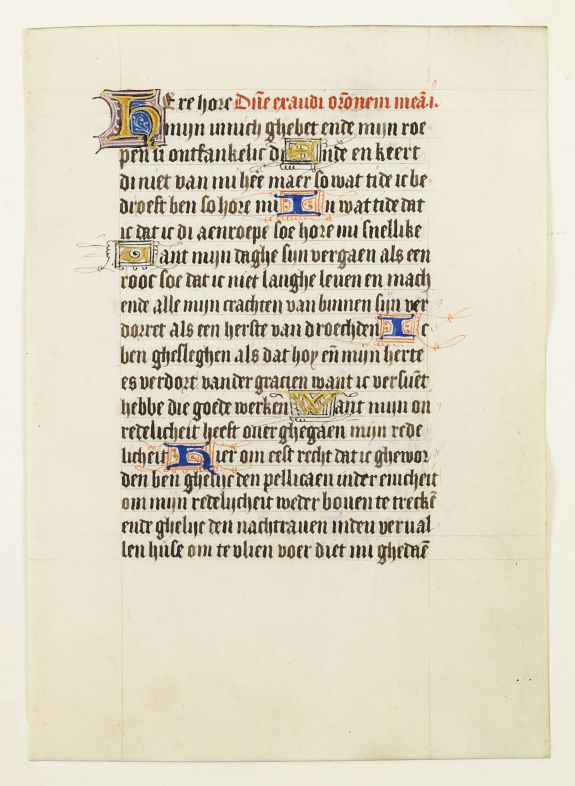 HEre hore Dñe exaudi orõnem meã.
mijn innich ghebet ende mijn roe
pen si ontfankelic di Ende en keert
di niet van mi hee maer so wat tide ic be
droeft ben so hore mi In wat tide dat
ic dat ic di aenroepe soe hore mi snellike
Want mijn daghe sijn vergaen als een
rooc soe dat ic niet langhe leuen en mach
ende alle mijn crachten van binnen sijn ver
dorret als een herste van droechden Ic
ben ghesleghen als dat hoy eñ mijn herte
es verdort vander gracien want ic versuet
hebbe die goede werken Want mijn on
redelicheit heeft ouerghegaen mijn rede
licheit Hier om eest recht dat ic ghewor
den ben ghelijc den pellicaen inder enicheit
om mijn redelijcheit weder bouen te treckē
ende ghelijc den nachtrauen inden verual
len huse om te vlien voer diet mi ghedaē